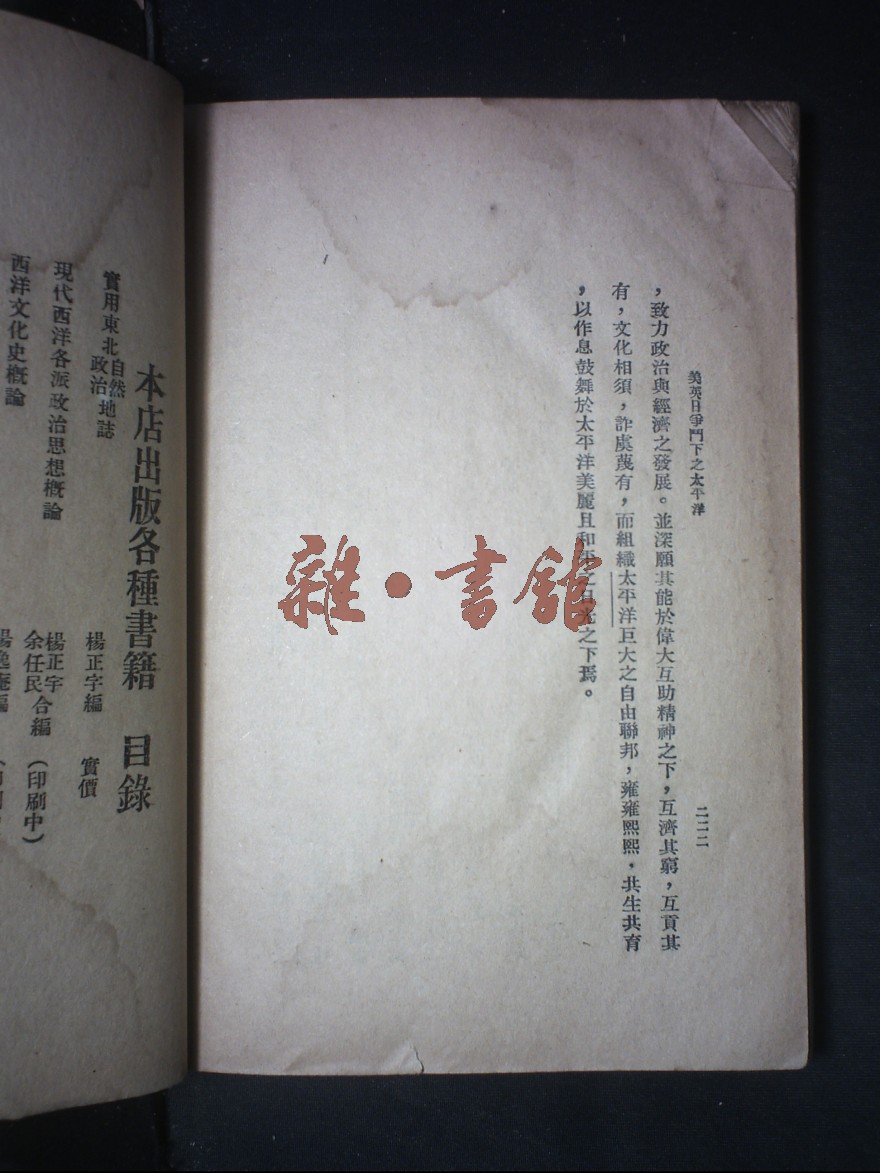 美英日爭鬥下之太平洋
二二二
，致力政治與經濟之發展。並深願其能於偉大互助精神之下，互濟其窮，互貢其
有，文化相須，詐虞蔑有，而組織太平洋巨大之自由聯邦，雍雍熙熙，共生共育
，以作息鼓舞於太平洋美麗且和平之日光之下焉。
雜·書館
本店出版各種書籍 目錄
實用東北自然政治地誌 楊正宇編 實價
現代西洋各派政治思想概論 楊正宇余任民合編 （印刷中）
西洋文化史概論 楊逸庵編